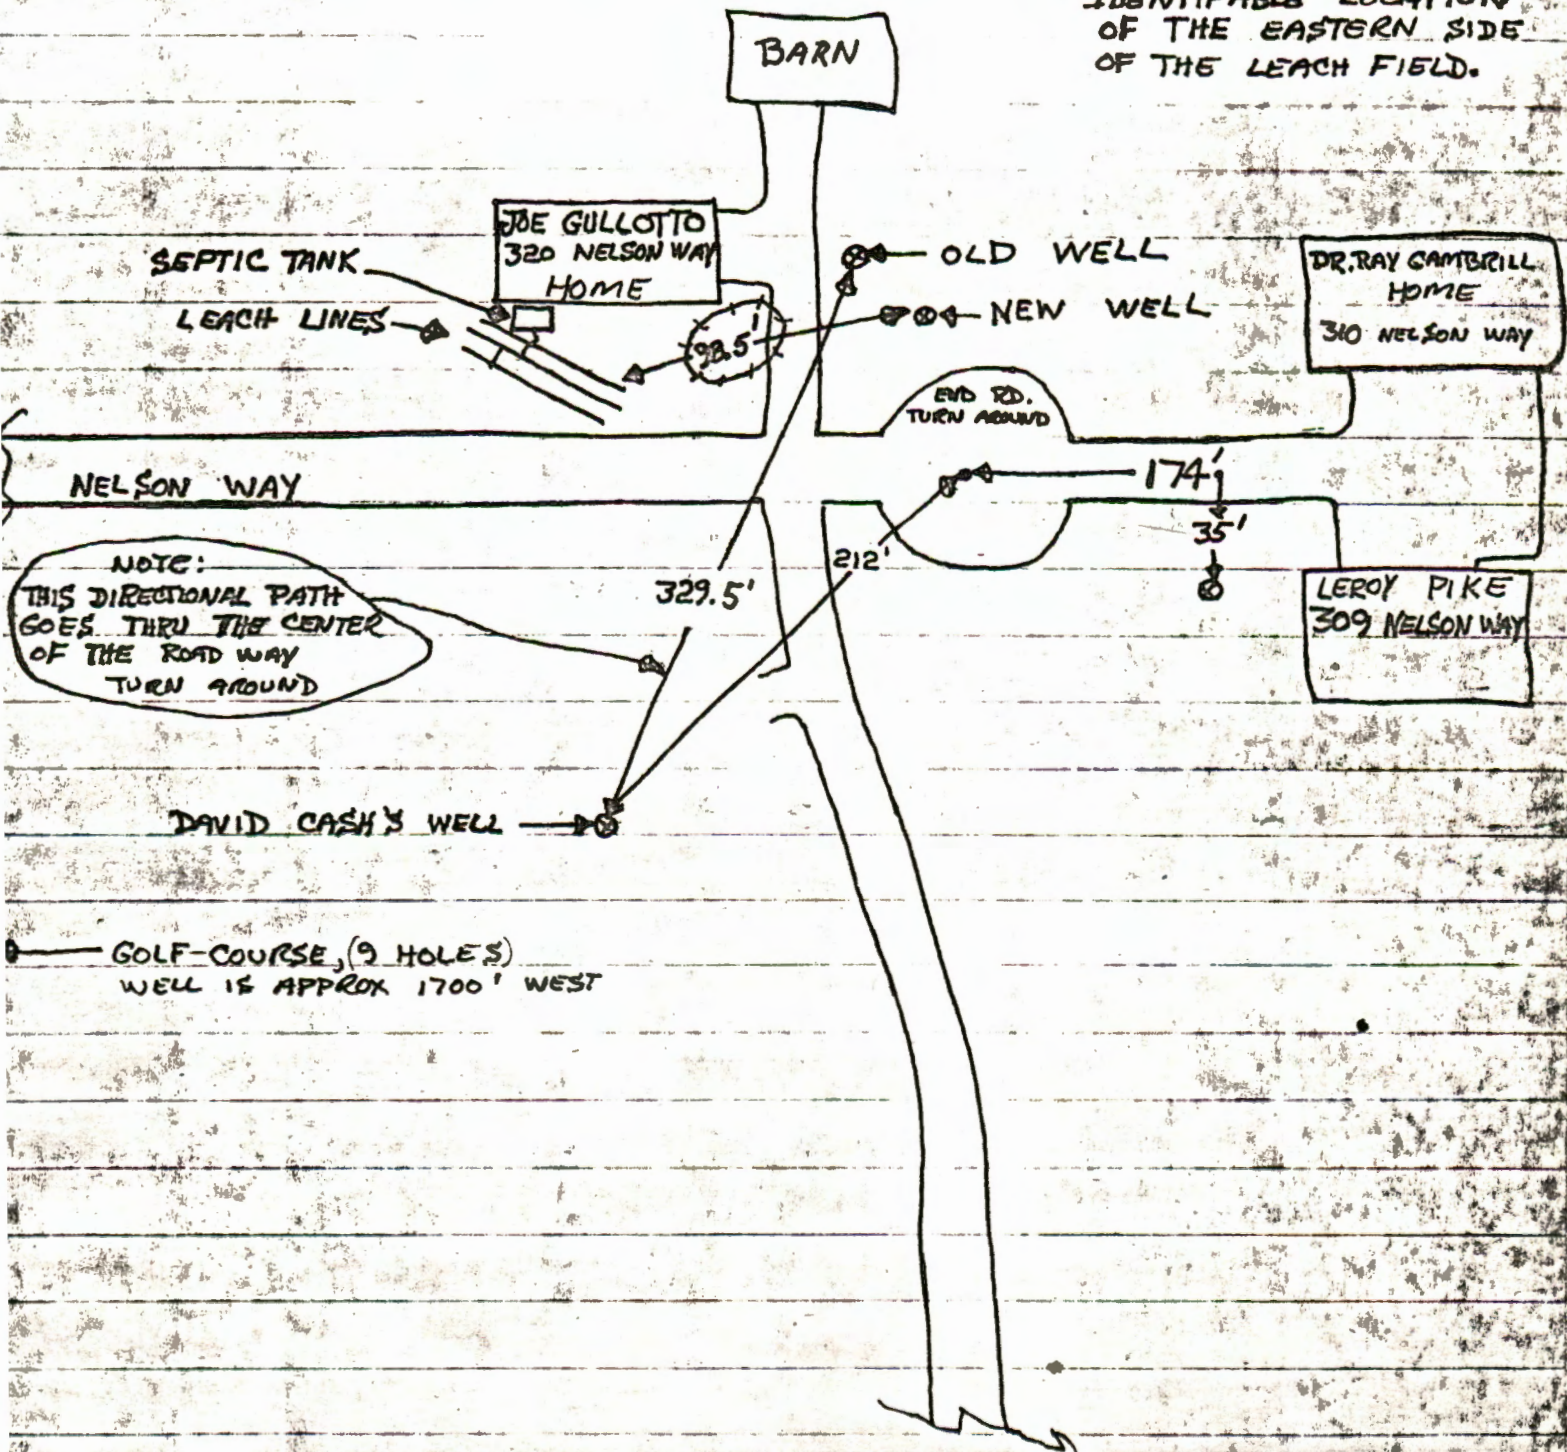 OF THE EASTERN SIDE
OF THE LEACH FIELD.
BARN
JOE GULLOTTO
320 NELSON WAY
HOME
SEPTIC TANK
LEACH LINES
OLD WELL
NEW WELL
DR. RAY GAMBRILL
HOME
310 NELSON WAY
98.5'
END RD.
TURN AROUND
NELSON WAY
174'
35'
212'
329.5'
NOTE:
THIS DIRECTIONAL PATH
GOES THRU THE CENTER
OF THE ROAD WAY
TURN AROUND
LEROY PIKE
309 NELSON WAY
DAVID CASH'S WELL
GOLF-COURSE, (9 HOLES)
WELL IS APPROX 1700' WEST